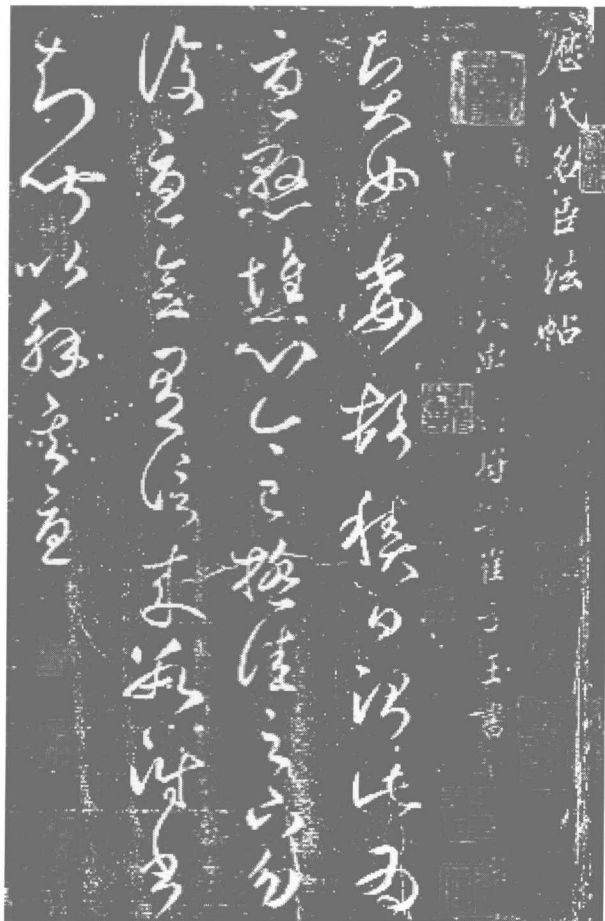 歷代名臣法帖
崔子玉書
賢女委頓積日治此為
憂懸燋心今已極佳足下勿
復憂念有信來數附書
知聞以解其憂